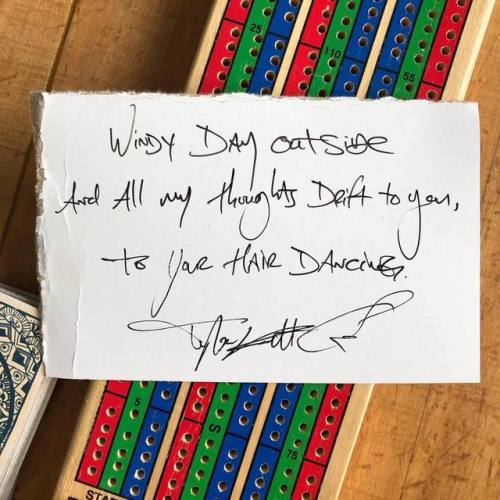 25
110
55
Windy Day outside
And All my thoughts Drift to you,
to your HAIR DANCING.
5
S
75
START